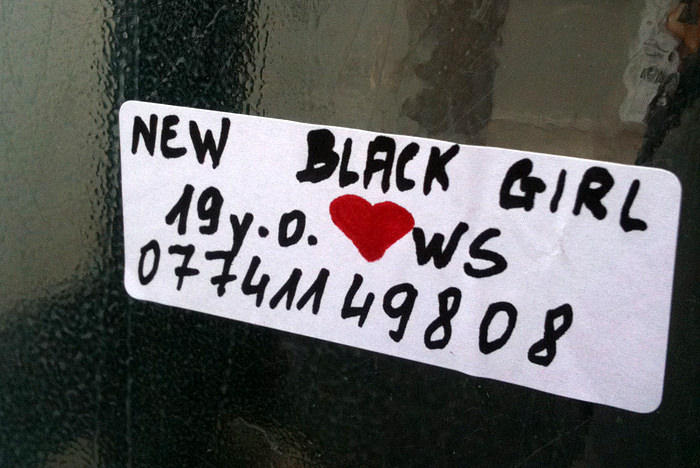 NEW BLACK GIRL
19 y.o. ❤ WS
07741149808